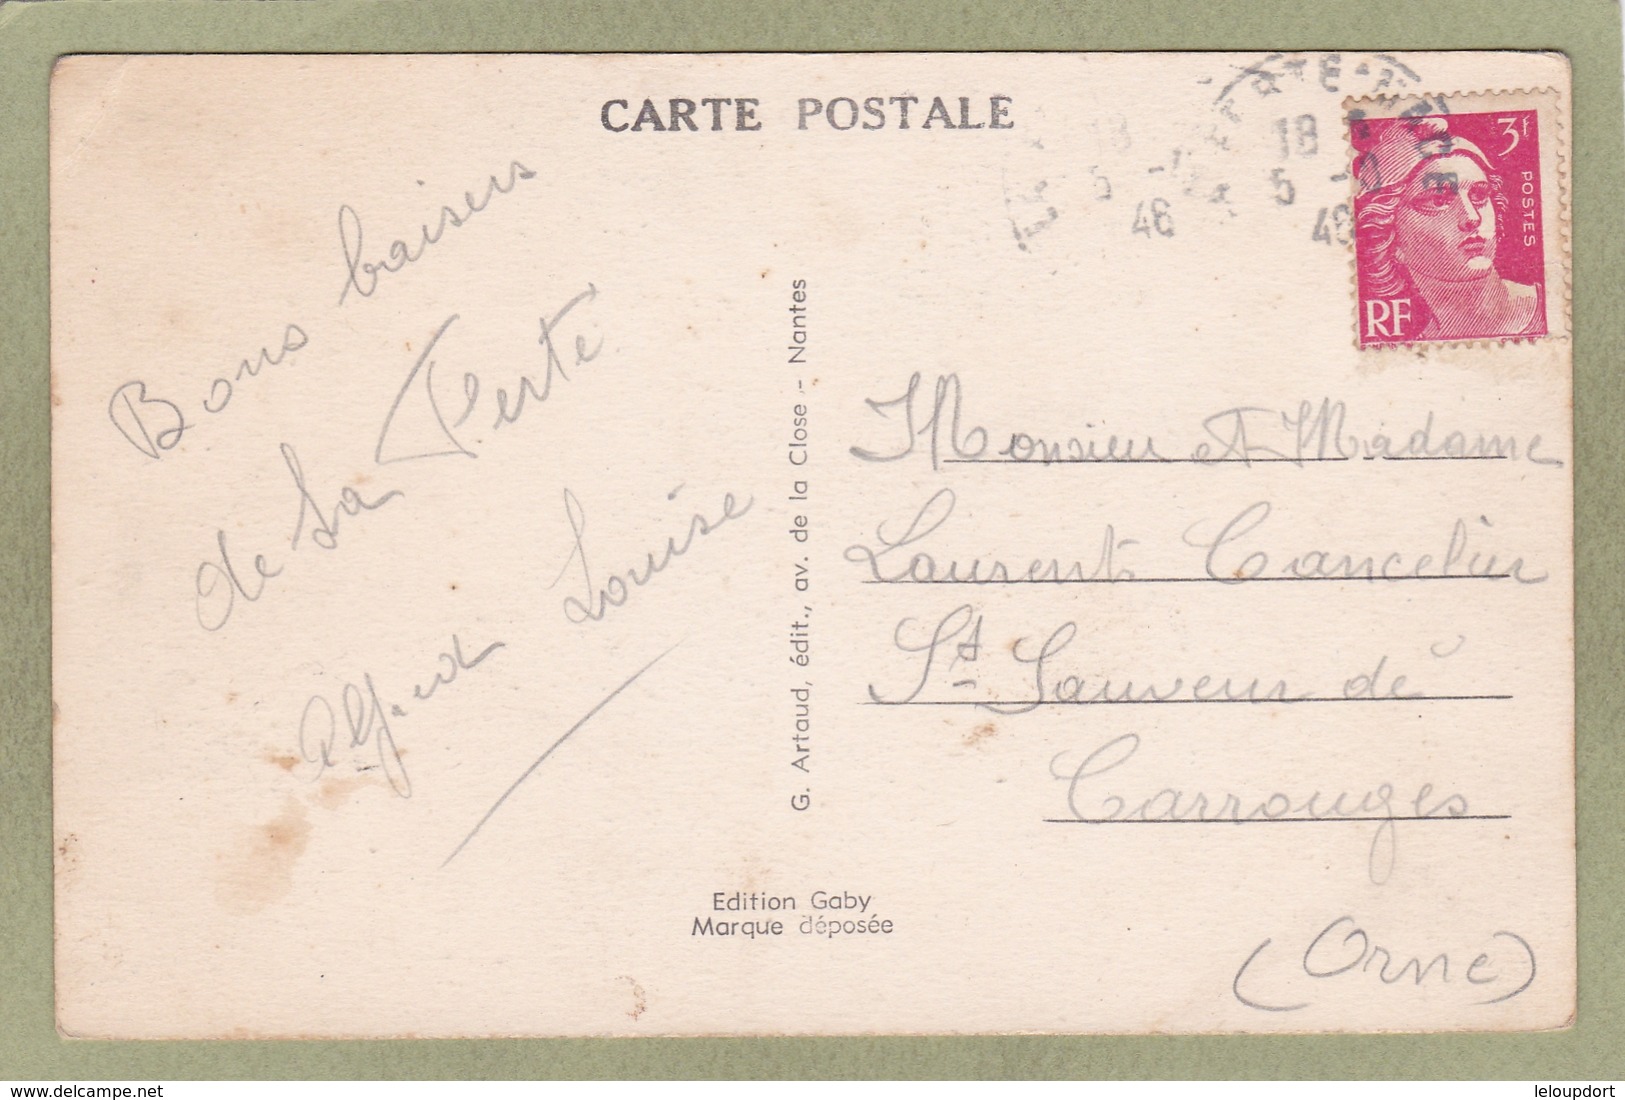 CARTE POSTALE
Bons baisers
de La Ferté
Alfred Louise
G. Artaud, édit., av. de la Close - Nantes
Edition Gaby
Marque déposée
18
5
46
18
5
46
3f
POSTES
RF
Monsieur et Madame
Laurent
St Sauveur de
Carrouges
(Orne)
leloupdort